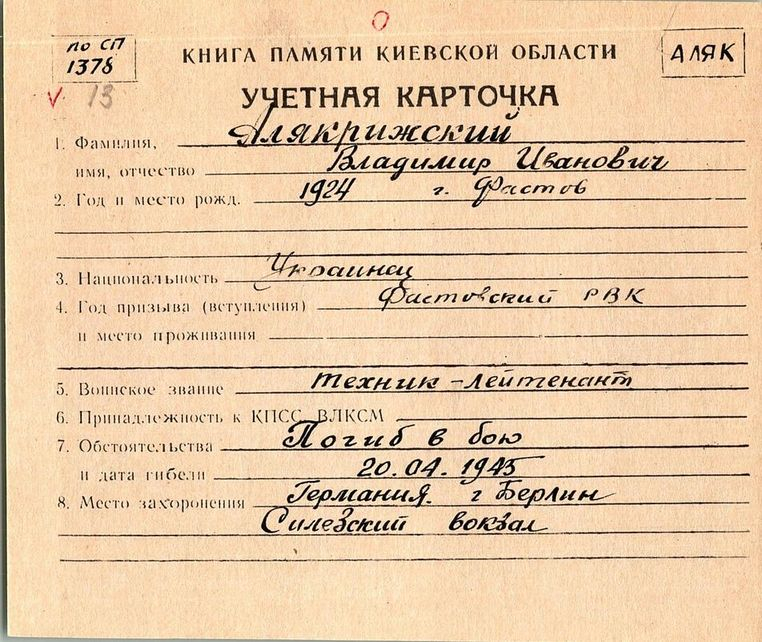 по СП
1378
13
КНИГА ПАМЯТИ КИЕВСКОЙ ОБЛАСТИ
АЛЯК
УЧЕТНАЯ КАРТОЧКА
1. Фамилия, Алякрижский
имя, отчество Владимир Иванович
2. Год и место рожд. 1924 г. Фастов
3. Национальность Украинец
4. Год призыва (вступления) Фастовский РВК
и место проживания
5. Воинское звание техник-лейтенант
6. Принадлежность к КПСС, ВЛКСМ
7. Обстоятельства Погиб в бою
и дата гибели 20.04.1945
8. Место захоронения Германия. г Берлин
Силезский вокзал